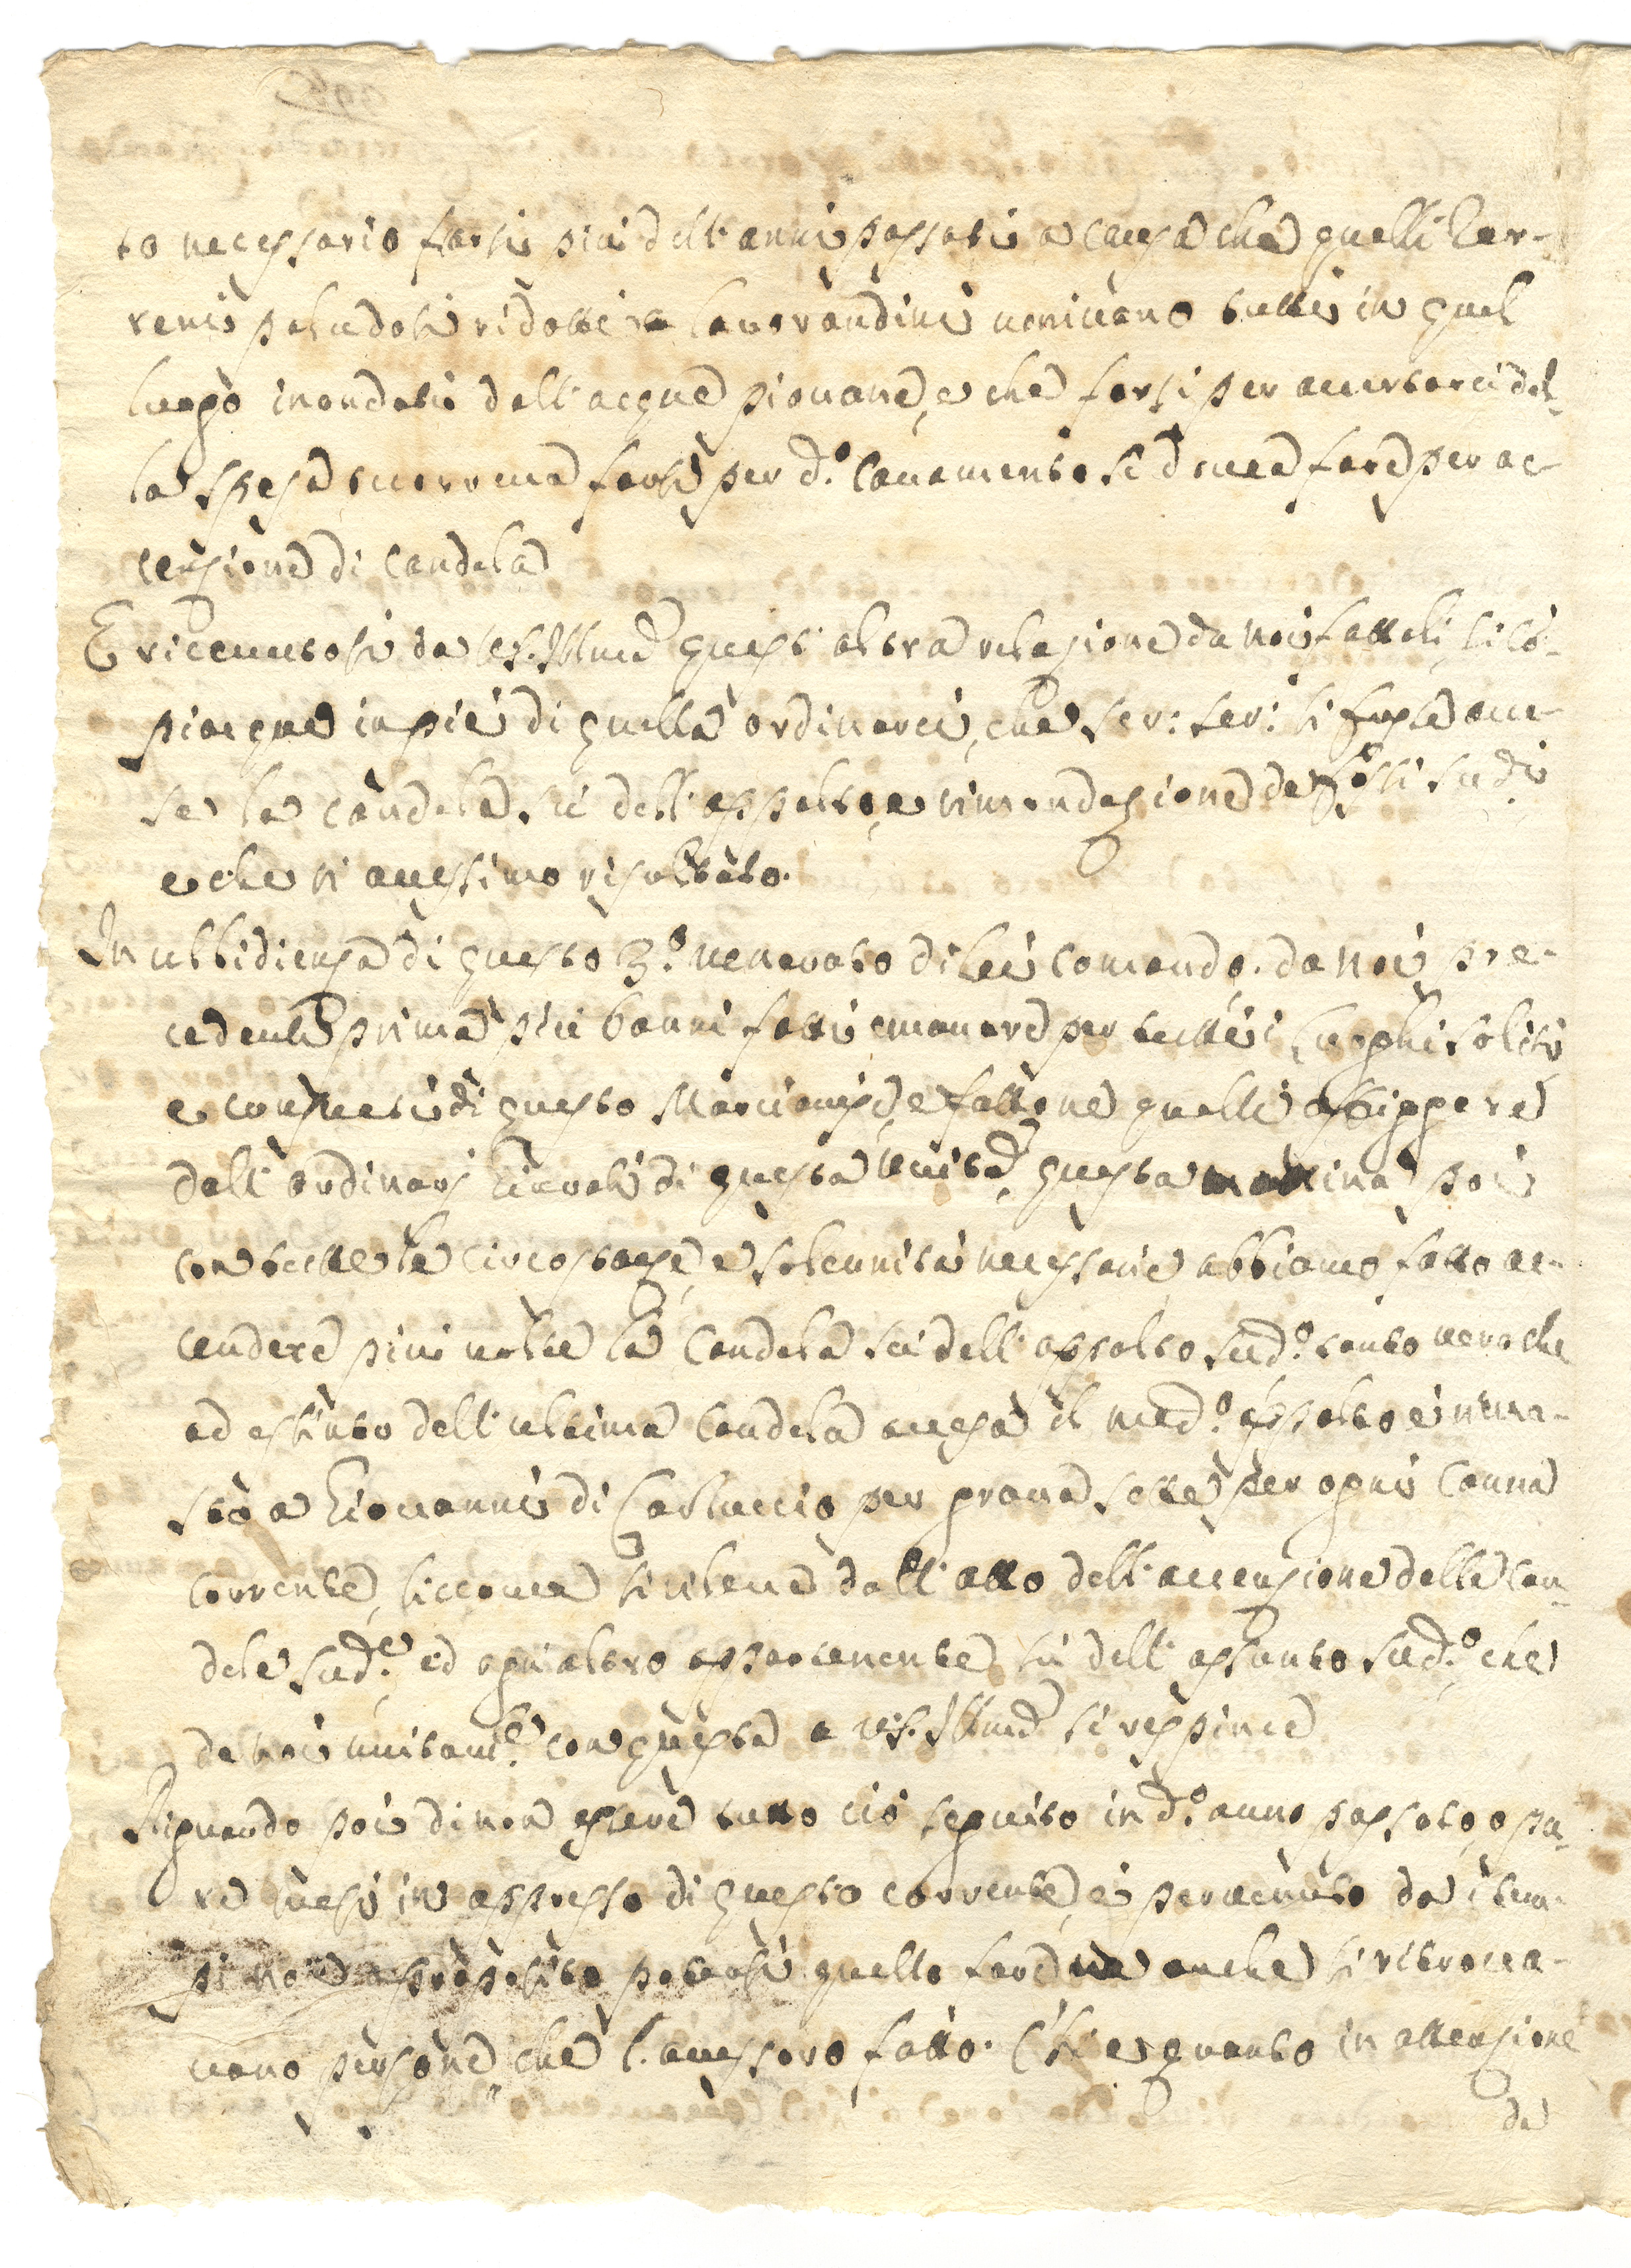 to necessario farsi più dell'anni passati a causa che quelli ter-
reni paludosi ridotti a lavorandini venivano tutti in quel
luogo inondati dall'acque piovane, e che farsi per accertarci del-
la spesa occorreva farsi per d.º cavamento si dovea fare per ac-
cenzione di candela
E ricevutosi da V.S. Ill.ma quest'altra relazione da noi fattali, si co-
piacque in piè di quella ordinarci, che ser: ser: si fusse acce-
se la candela sù dell'appalto, e rimondazione de fossi sud.i
e che vi avessimo risultato.
In ubbidienza di questo 3.º venerato di lei comando, da noi pre-
cedente prima più banni fatti emanare per tutti i luoghi soliti
e consueti di questo Marcianise, e fattone quelli affiggere
dall'ordinarj Giurati di questa Unità, questa mattina poi
con tutte le circostanze, e solennità necessarie abbiamo fatto ac-
cendere più volte la candela sù dell'appalto sud.º tanto vero che
ad estinto dell'ultima candela accesa il med.º appalto è rima-
sto a Giovanni di Carluccio per grana sette per ogni canna
corrente, siccome si rileva dall'atto dell'accenzione delle can-
dele sud.e ed ogn'altro appartenente sù dell'assunto sud.º, che
da noi unitam.e con questa a V.S. Ill.ma si respince
Riguardo poi di non essere tutto ciò seguito in d.º anno passato, o pu-
re mesi in appresso di questo corrente, è pervenuto da i tem-
pi non a proposito potersi quello fare ne anche si ritrova-
vano persone, che l'avessero fatto. Ch'è quanto in attenzione
da